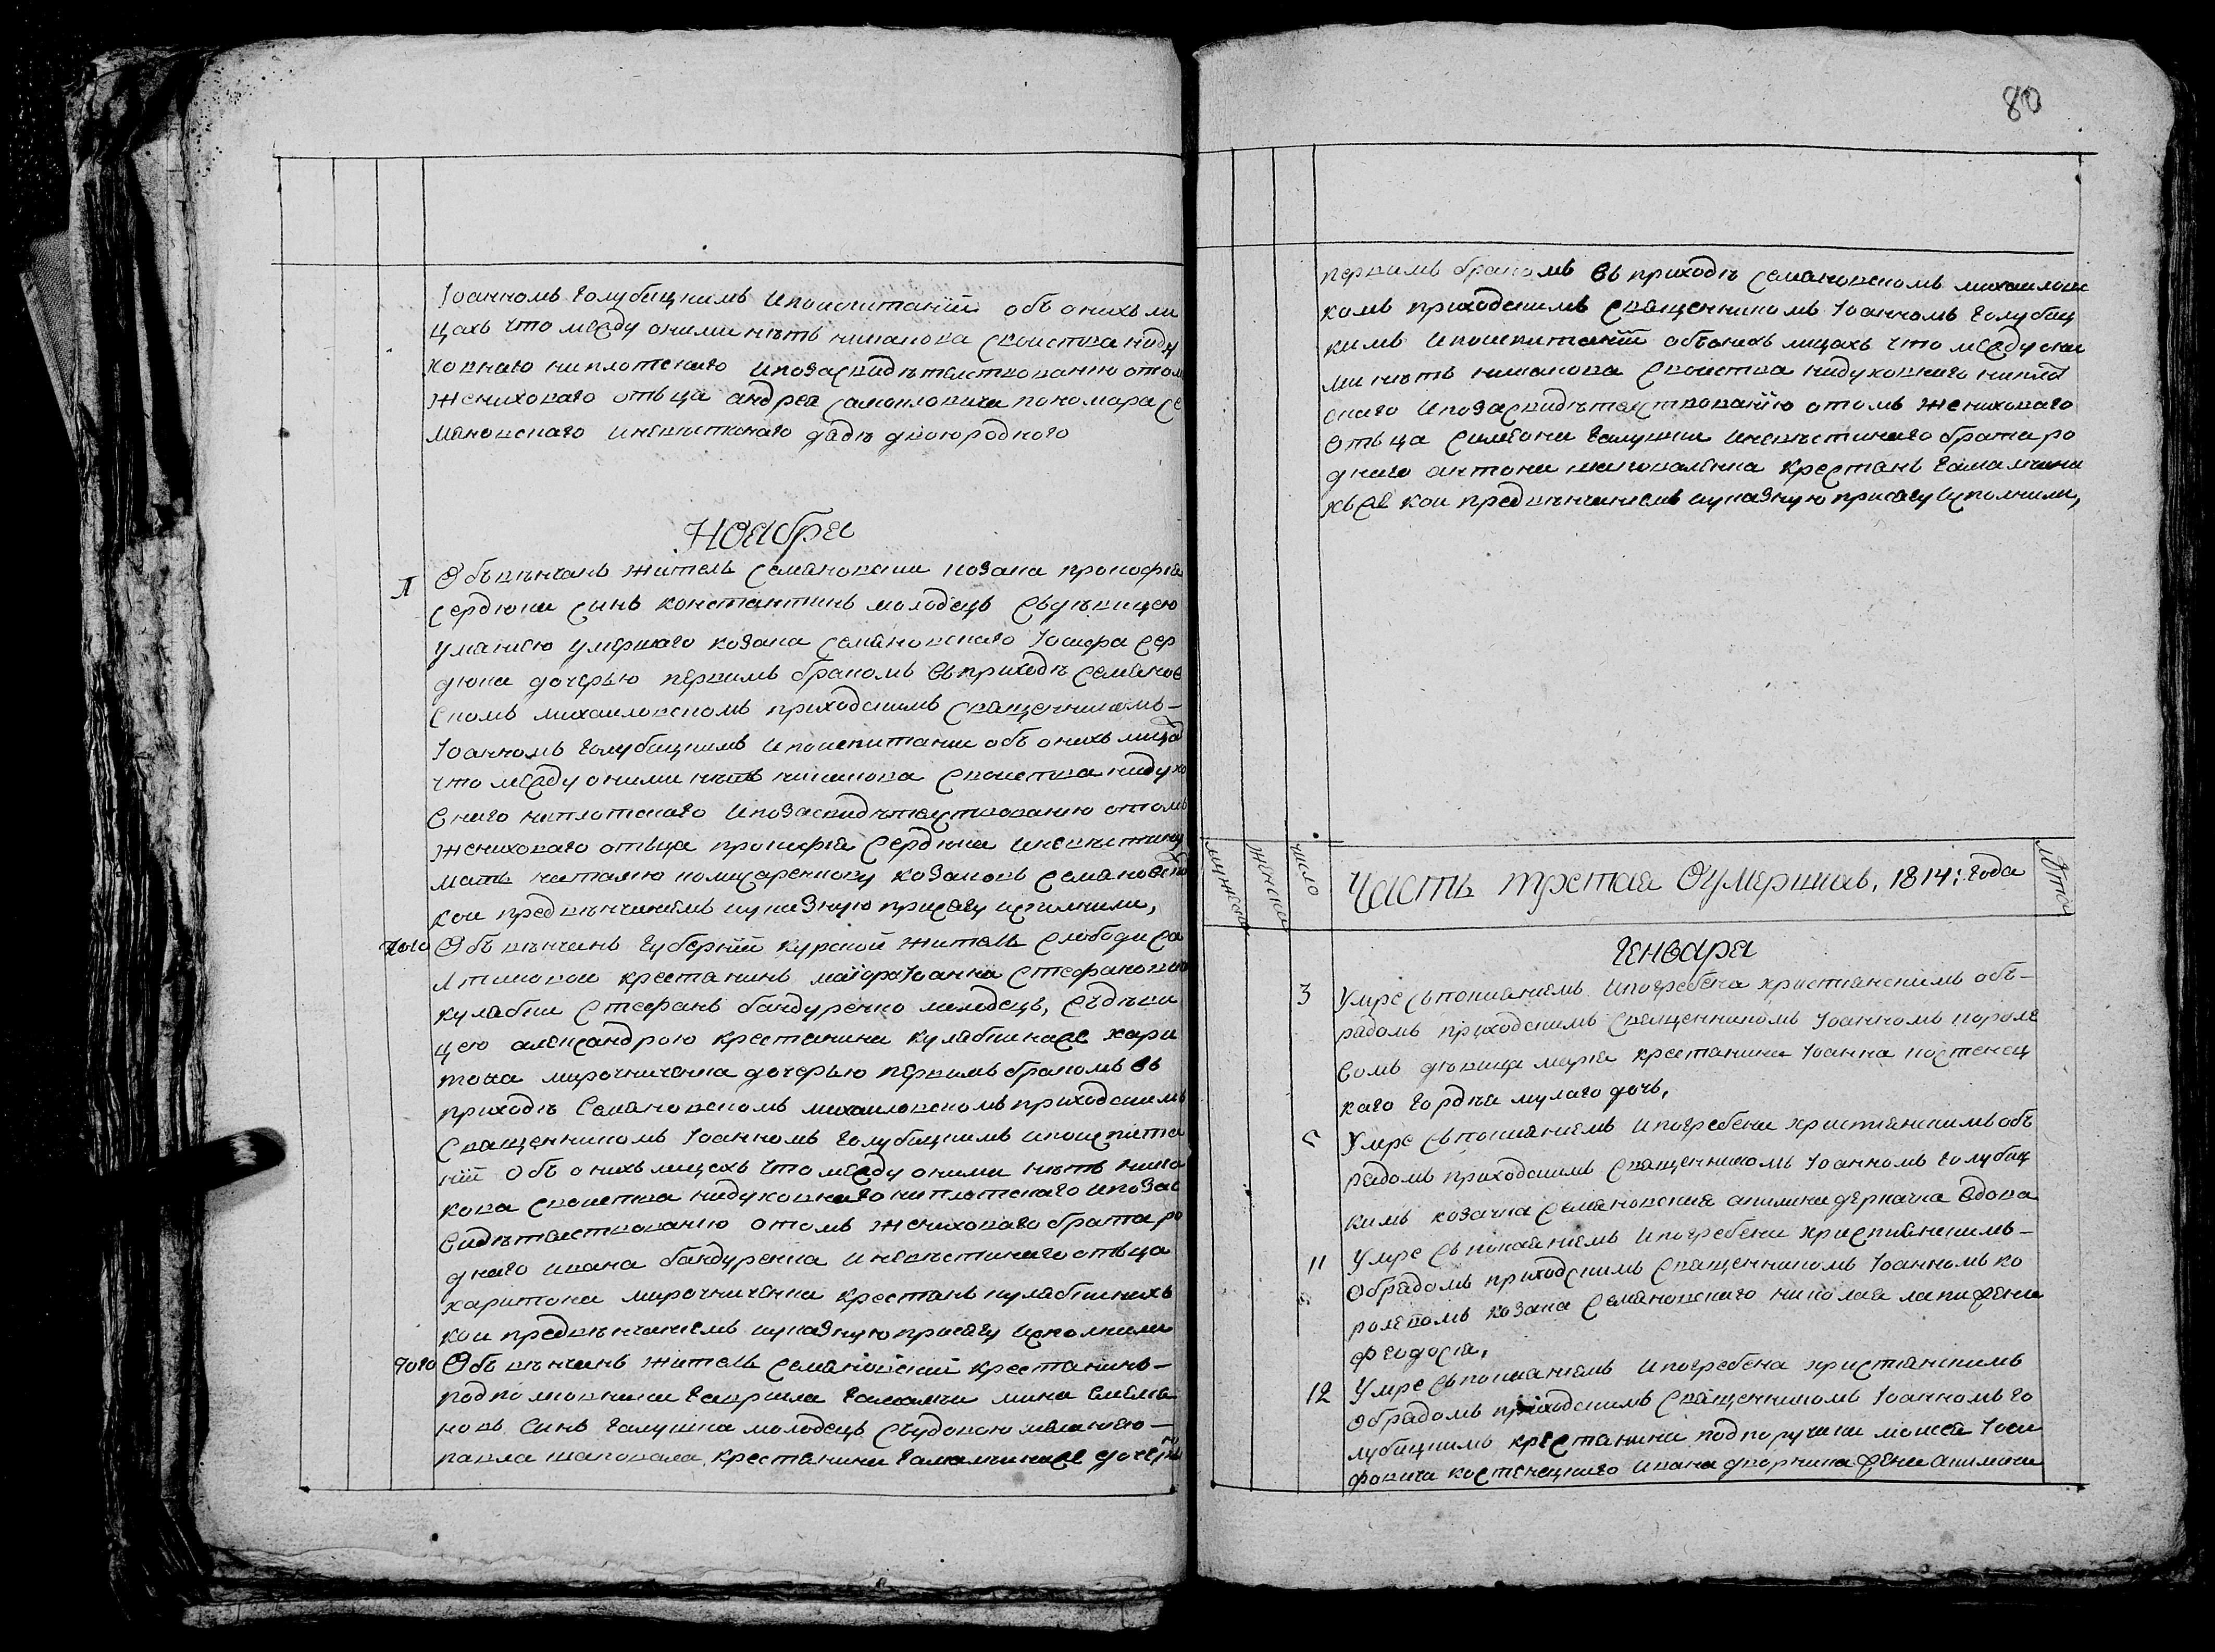 Іоанномъ Голубицкимъ ипоиспитаніи обь онихъ ли
цахъ что между оними нѣтъ никакова своиства ниду
ховнаго ниплотскаго ипозасвидѣтелствованию отом
жениховаго отъца андрея самоиловича пономара се
мяновскаго иневѣстинаго дядѣ двоюродного
Ноября
Объвѣнчанъ житель семяновкии козака прокофия
сердюка синъ константинъ молодецъ сьдѣвицею
улианиею умершаго козака семяновского Іосифа сер
дюка дочерью первимъ бракомъ въприходѣ семянов
скомъ михаиловскомъ приходскимъ священникомъ-
Іоанномъ Голубицкимъ ипоиспитании объ онихъ лица
что между оними нѣтъ никакова своиства нидухо
внаго ниплотскаго ипозасвидѣтелствованию отомъ
жениховаго отьца прокофия Сердюка иневѣстину
мать наталию козаковъ семяновски
кои предвѣнчаниемъ указную присягу исполнили,
Того Объвѣнчанъ губерніи курской житель слободи са
лтиковои крестянинъ маіора Іоанна Стефановича
кулябки Стефанъ бандуренко молодецъ, съдѣви
цею александрою крестянина кулябкинаго хари
тона мирочниченка дочерью первимъ бракомъ въ
приходѣ Семяновскомъ михаиловскомъ приходскимъ
Священникомъ Іоанномъ Голубицкимъ ипоиспита
ніи объ онихъ лицахъ что между оними нѣтъ ника
кова своиства нидуховнаго ниплотскаго ипозас
видѣтелствованию отомъ жениховаго брата ро
днаго ивана бандуренка иневѣстинаго отъца
харитона мирочниченка крестянъ кулябкинихъ
кои предвѣнчаниемъ указную присягу исполнили
Того Объ вѣнчанъ житель семяновский крестянинъ-
подполковника Гаврила Гамалеи мина Симео
новъ Синъ Галушка молодецъ съудовою меланиею-
павла шаповала крестянина Гамалѣинаго дочерью
80
первимъ бракомъ въ приходѣ Семяновскомъ михаиловс
комъ приходскимъ Священникомъ Іоанномъ Голубиц
кимъ ипоиспитаніи объонихъ лицахъ что между они
ми нѣтъ никакова своиства нидуховнаго нипло
скаго ипозасвидѣтелствованію отомъ жениховаго
отъца Симеона Галушки иневѣстинаго брата ро
днаго антона шаповаленка крестянъ Гамалѣини
кои предвѣнчаниемъ указную присягу исполнили,
мужеска
женска
число
Часть третая Оумершихъ, 1814: года
Лѣта
Генваря
3 Умре съпокаяниемъ ипогребена христианскимъ объ-
рядомъ приходскимъ Священникомъ Іоанномъ короле
вомъ дѣвица мария крестянина Іоанна костенец
каго Гордѣя дочь,
5 Умре съпокаяниемъ ипогребена христианскимъ объ
рядомъ приходскимъ священникомъ Іоанномъ Голубиц
кимъ козачка семяновская акилина деркачка вдова
11 Умре съ покаяниемъ ипогребена христианскимъ-
обрядомъ приходскимъ священникомъ Іоанномъ ко
ролевомъ козака Семяновскаго николая
феодосія,
12 Умре съпокаяниемъ ипогребена христианскимъ
обрядомъ приходскимъ Священникомъ Іоанномъ Го
лубицкимъ крестянина подпоручика моисея Іоси
фовича костенецкаго ивана дворника жена акилина